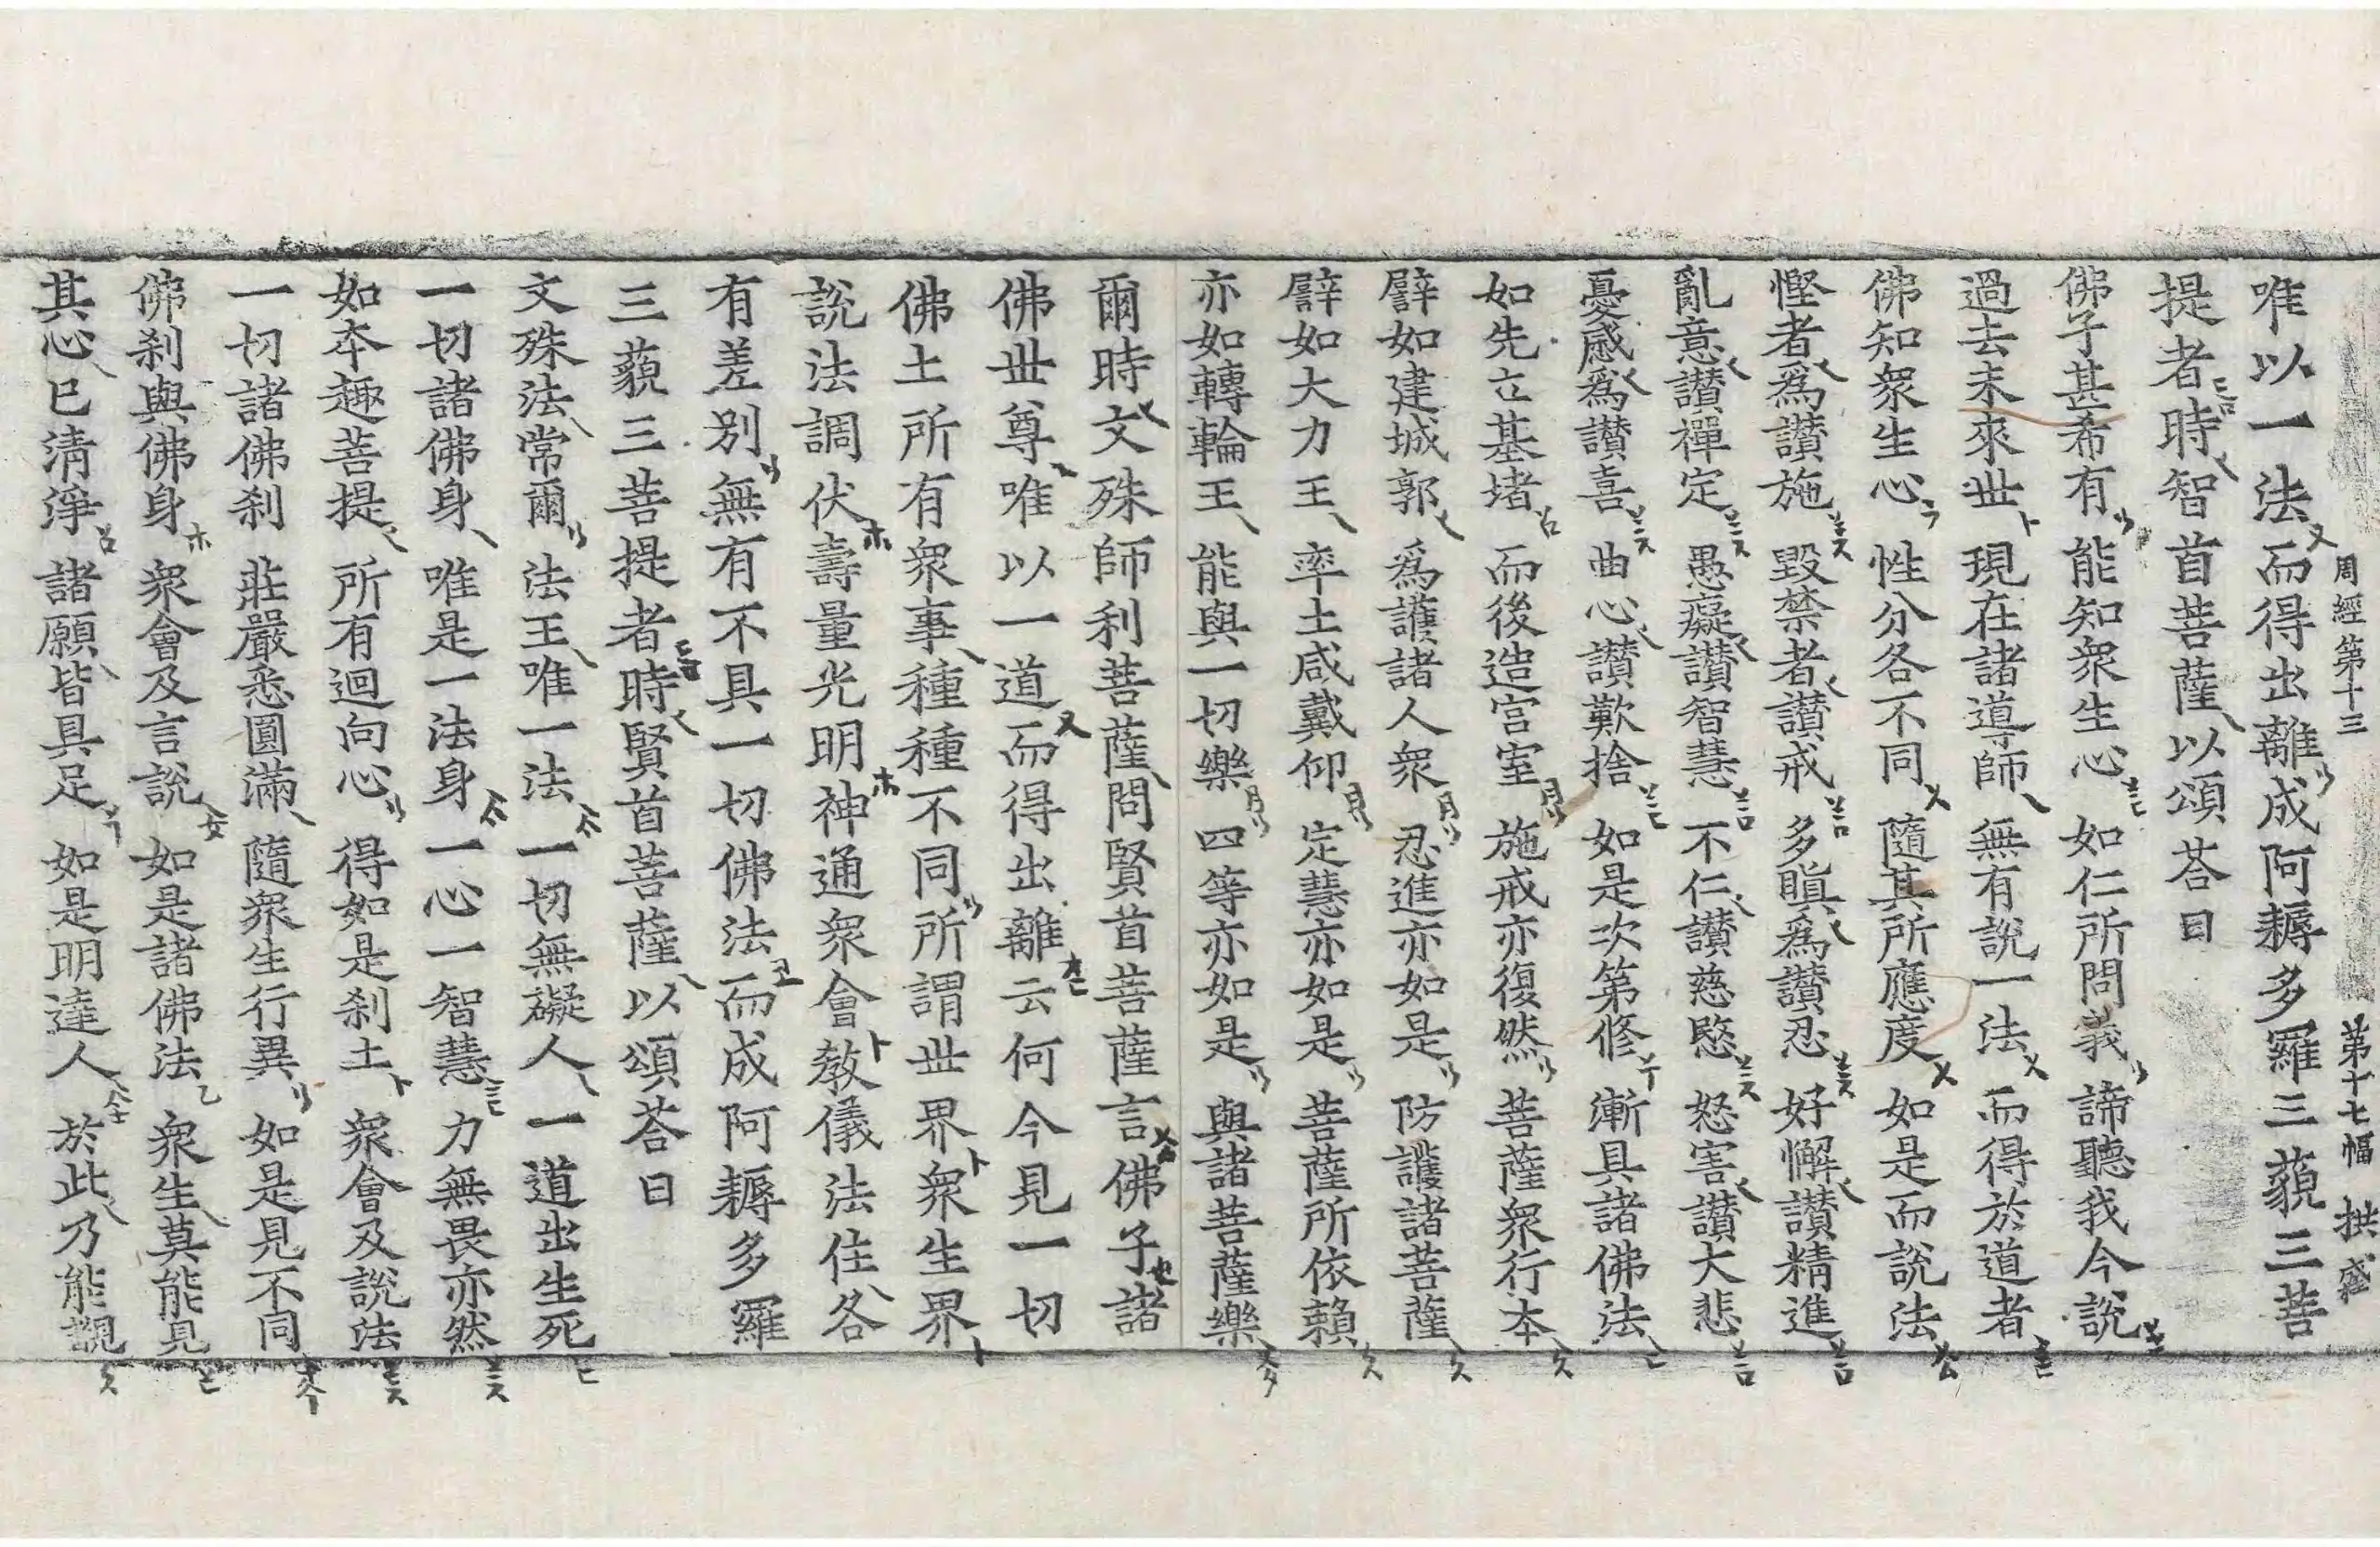 周經第十三 第十七幅 拱 盛
唯以一法而得出離成阿耨多羅三藐三菩
提者時智首菩薩以頌荅曰
佛子甚希有 能知衆生心 如仁所問義 諦聽我今說
過去未來世 現在諸導師 無有說一法 而得於道者
佛知衆生心 性分各不同 隨其所應度 如是而說法
慳者爲讚施 毀禁者讚戒 多瞋爲讚忍 好懈讚精進
亂意讚禪定 愚癡讚智慧 不仁讚慈愍 怒害讚大悲
憂慼爲讚喜 曲心讚歎捨 如是次第修 漸具諸佛法
如先立基堵 而後造宮室 施戒亦復然 菩薩衆行本
譬如建城郭 爲護諸人衆 忍進亦如是 防護諸菩薩
譬如大力王 率土咸戴仰 定慧亦如是 菩薩所依賴
亦如轉輪王 能與一切樂 四等亦如是 與諸菩薩樂
爾時文殊師利菩薩問賢首菩薩言佛子諸
佛世尊唯以一道而得出離云何今見一切
佛土所有衆事種種不同所謂世界衆生界
說法調伏壽量光明神通衆會教儀法住各
有差别無有不具一切佛法而成阿耨多羅
三藐三菩提者時賢首菩薩以頌荅曰
文殊法常爾 法王唯一法 一切無礙人 一道出生死
一切諸佛身 唯是一法身 一心一智慧 力無畏亦然
如本趣菩提 所有迴向心 得如是刹土 衆會及說法
一切諸佛刹 莊嚴悉圓滿 隨衆生行異 如是見不同
佛刹與佛身 衆會及言說 如是諸佛法 衆生莫能見
其心已淸淨 諸願皆具足 如是明達人 於此乃能覩